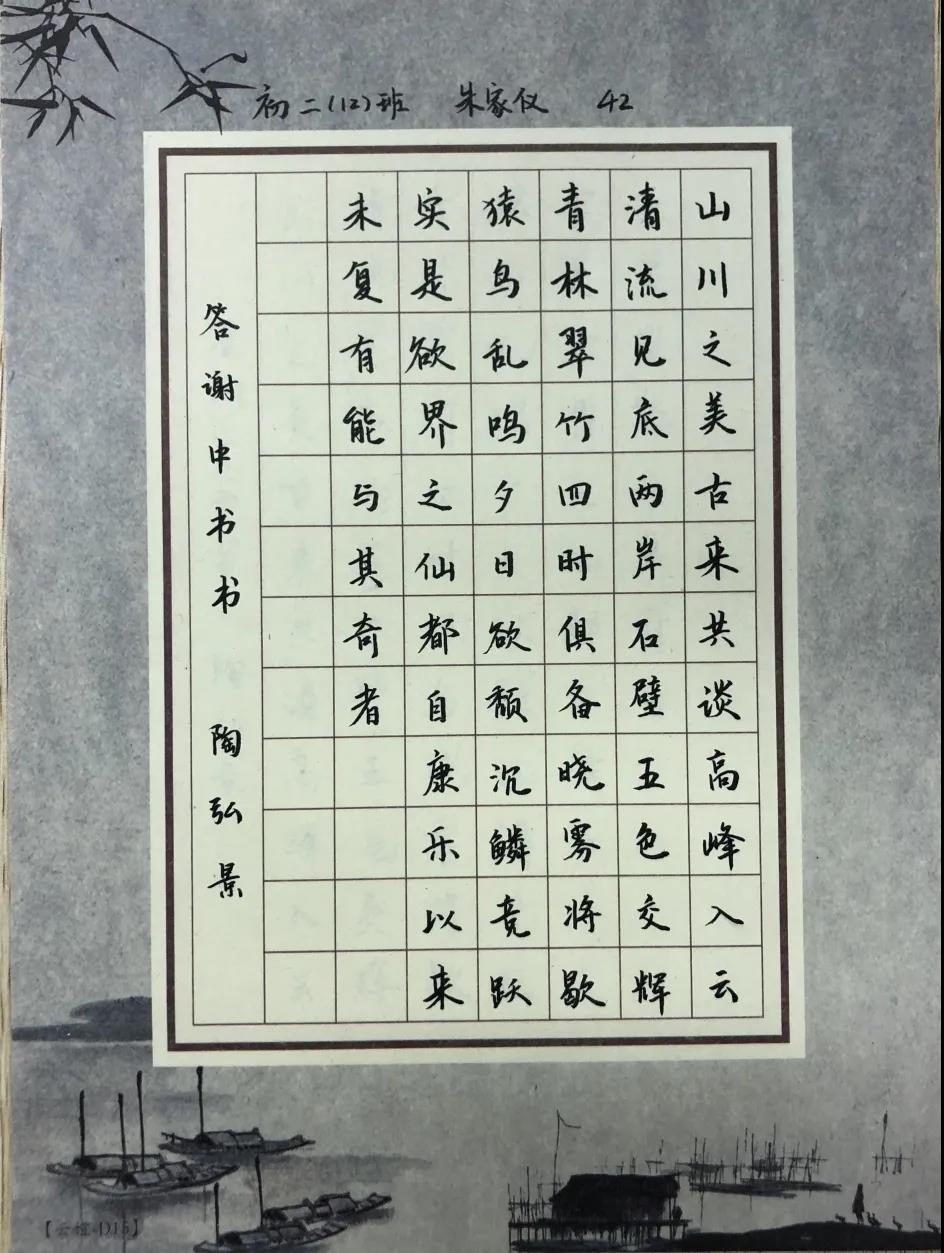 初二(12)班 朱家仪 42
山川之美古来共谈高峰入云
清流见底两岸石壁五色交辉
青林翠竹四时俱备晓雾将歇
猿鸟乱鸣夕日欲颓沉鳞竞跃
实是欲界之仙都自康乐以来
未复有能与其奇者
答谢中书书 陶弘景